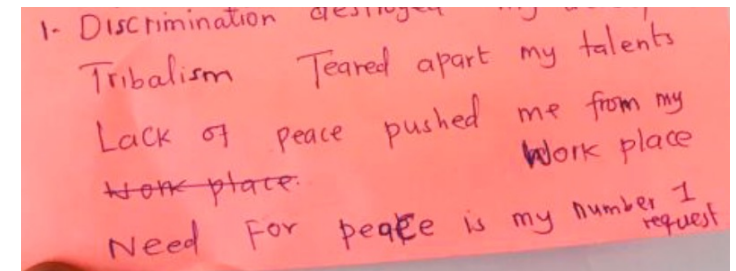 1- Discrimination destroyed my
Tribalism Teared apart my talents
Lack of peace pushed me from my
work place. Work place
Need For peace is my number 1
request